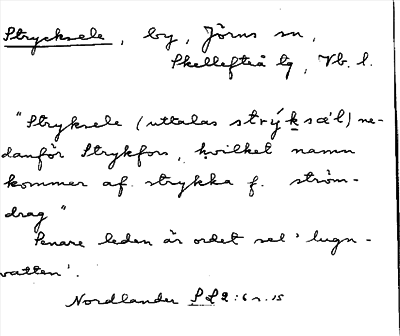 Strycksele, by, Jörns sn,
Skellefteå tg, Vb. l.
"Stryksele (uttalas strýksæ'l) ne-
danför Strykfors, hvilket namn
kommer af strykka f. ström-
drag"
Senare leden är ordet sel 'lugn-
vatten'.
Nordlander S L 2:6 s. 15